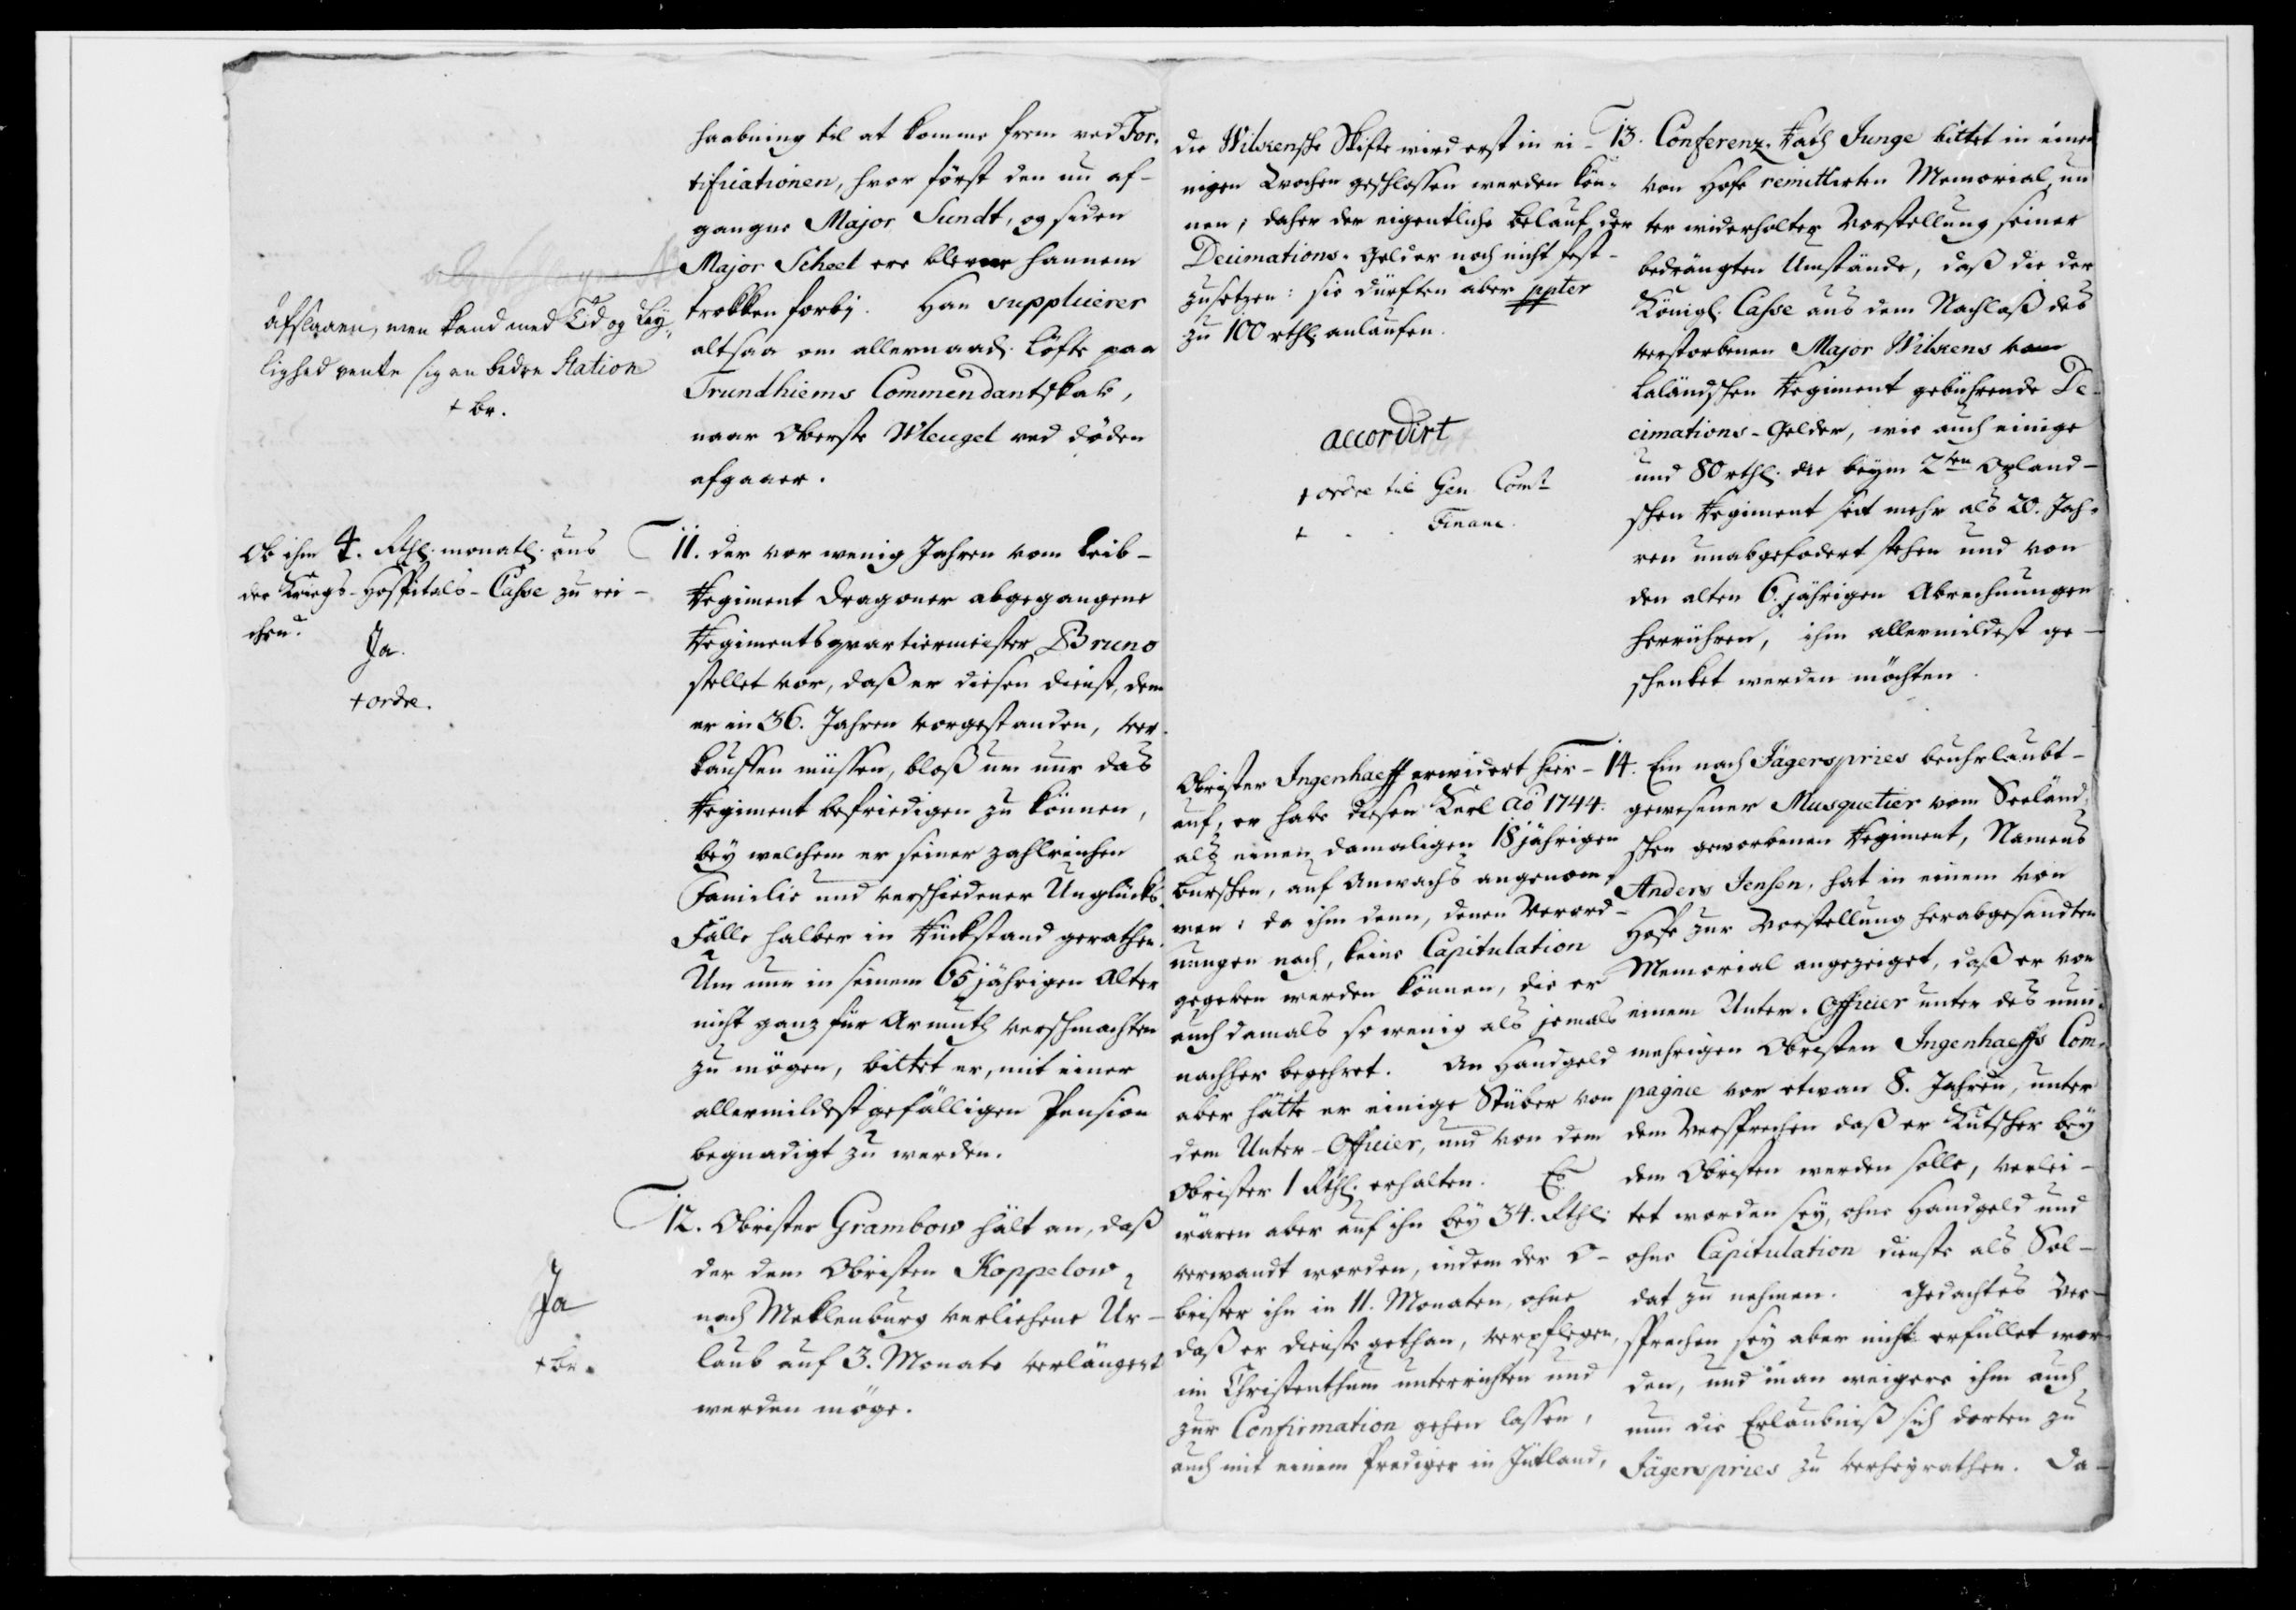 haabning til at komme frem ved For-
tificationen, hvor först den nu af-
gangne Major Sundt, og siden
Major Scheel ere blevne hannem
trokken forbi. Han supplicerer
altsaa om allernaad. Löfte paa
Trundhiems Commendantskab,
naar Oberste Mengel ved döden
afgaaer.
afslaaen, men kand med Tid og Ley-
lighed vente sig en bedre Station
+ br.
Ob ihm 4. Rthl. monatl. aus
der Kriegs-Hospitals-Casse zu rei-
chen?
Ja.
+ ordre.
11. der vor wenig Jahren vom Leib-
Regiment Dragoner abgegangene
Regimentsquartiermeister Bruno
stellet vor, daß er diesen dienst, dem
er in 36. Jahren vorgestanden, ver-
kauffen müssen, bloß um nur das
Regiment befriedigen zu können,
bey welchem er seiner zahlreichen
Familie und verschiedener Unglücks-
Fälle halber in Rückstand gerathen.
Um nun in seinem 65 jährigen Alter
nicht ganz für Armuth verschmachten
zu mögen, bittet er, mit einer
allermildest gefälligen Pension
begnadigt zu werden.
12. Obrister Grambow hält an, daß
der dem Obristen Koppelow,
nach Meklenburg verliehene Ur-
laub auf 3. Monate verlängert
werden möge.
Ja
+ br.
die Wilsensche Skifte wird erst in ei-
nigen Wochen geschlossen werden kön-
nen; daher der eigentliche belauf der
Decimations-Gelder noch nicht fest-
zusetzen: sie dürften aber ppter
zu 100 rthl. anlaufen.
accordirt
+ ordre til Gen. Comt
+ . . Financ.
13. Conferenz-Rath Junge bittet in einem
von Hofe remittirten Memorial, un
ter widerholter Vorstellung seiner
bedrängten Umstände, daß die der
Königl. Casse aus dem Nachlaß des
verstorbenen Major Wilsens vom
Laländschen Regiment gebührende De-
cimations-Gelder, wie auch einige
und 80 rthl. die beym 2ten Opland-
schen Regiment seit mehr als 20. Jah-
ren unabgefodert stehen und von
den alten 6. jährigen Abrechnungen
herrühren, ihm allermildest ge-
schenket werden möchten.
Obrister Ingenhaeff erwidert hier-
auf, er habe diesen Kerl Ao 1744.
als einen damaligen 18 jährigen
burschen, auf Anwachs angenom-
men; da ihm denn, denen Verord-
nungen nach, keine Capitulation
gegeben werden können, die er
auch damals so wenig als jemals
nachher begehret. An Handgeld
aber hätte er einige Stüber von
dem Unter-Officier, und von dem
Obrister 1 Rthl. erhalten. Es
wären aber auf ihn bey 34. Rthl.
verwandt worden, indem der O-
brister ihn in 11. Monaten, ohne
daß er dienste gethan, verpflegen,
im Christenthum unterrichten und
zur Confirmation gehen lassen,
auch mit einem Prediger in Jütland,
14. Ein nach Jägerspries beuhrlaubt-
gewesener Musquetier vom Seeländ-
schen geworbenen Regiment, Namens
Anders Jensen, hat in einem von
Hofe zur Vorstellung herabgesandten
Memorial angezeiget, daß er von
einem Unter-Officier unter des nun-
mehrigen Obristen Ingenhaeffs Com-
pagnie vor etwan 8. Jahren, unter
dem Versprechen daß er Kutscher bey
dem Obristen werden solle, verlei-
tet worden sey, ohne Handgeld und
ohne Capitulation dienste als Sol-
dat zu nehmen. Gedachtes Ver-
sprechen sey aber nicht erfüllet wor-
den, und man weigere ihm auch
nun die Erlaubniß sich dorten zu
Jägerspries zu verheyrathen. Da-